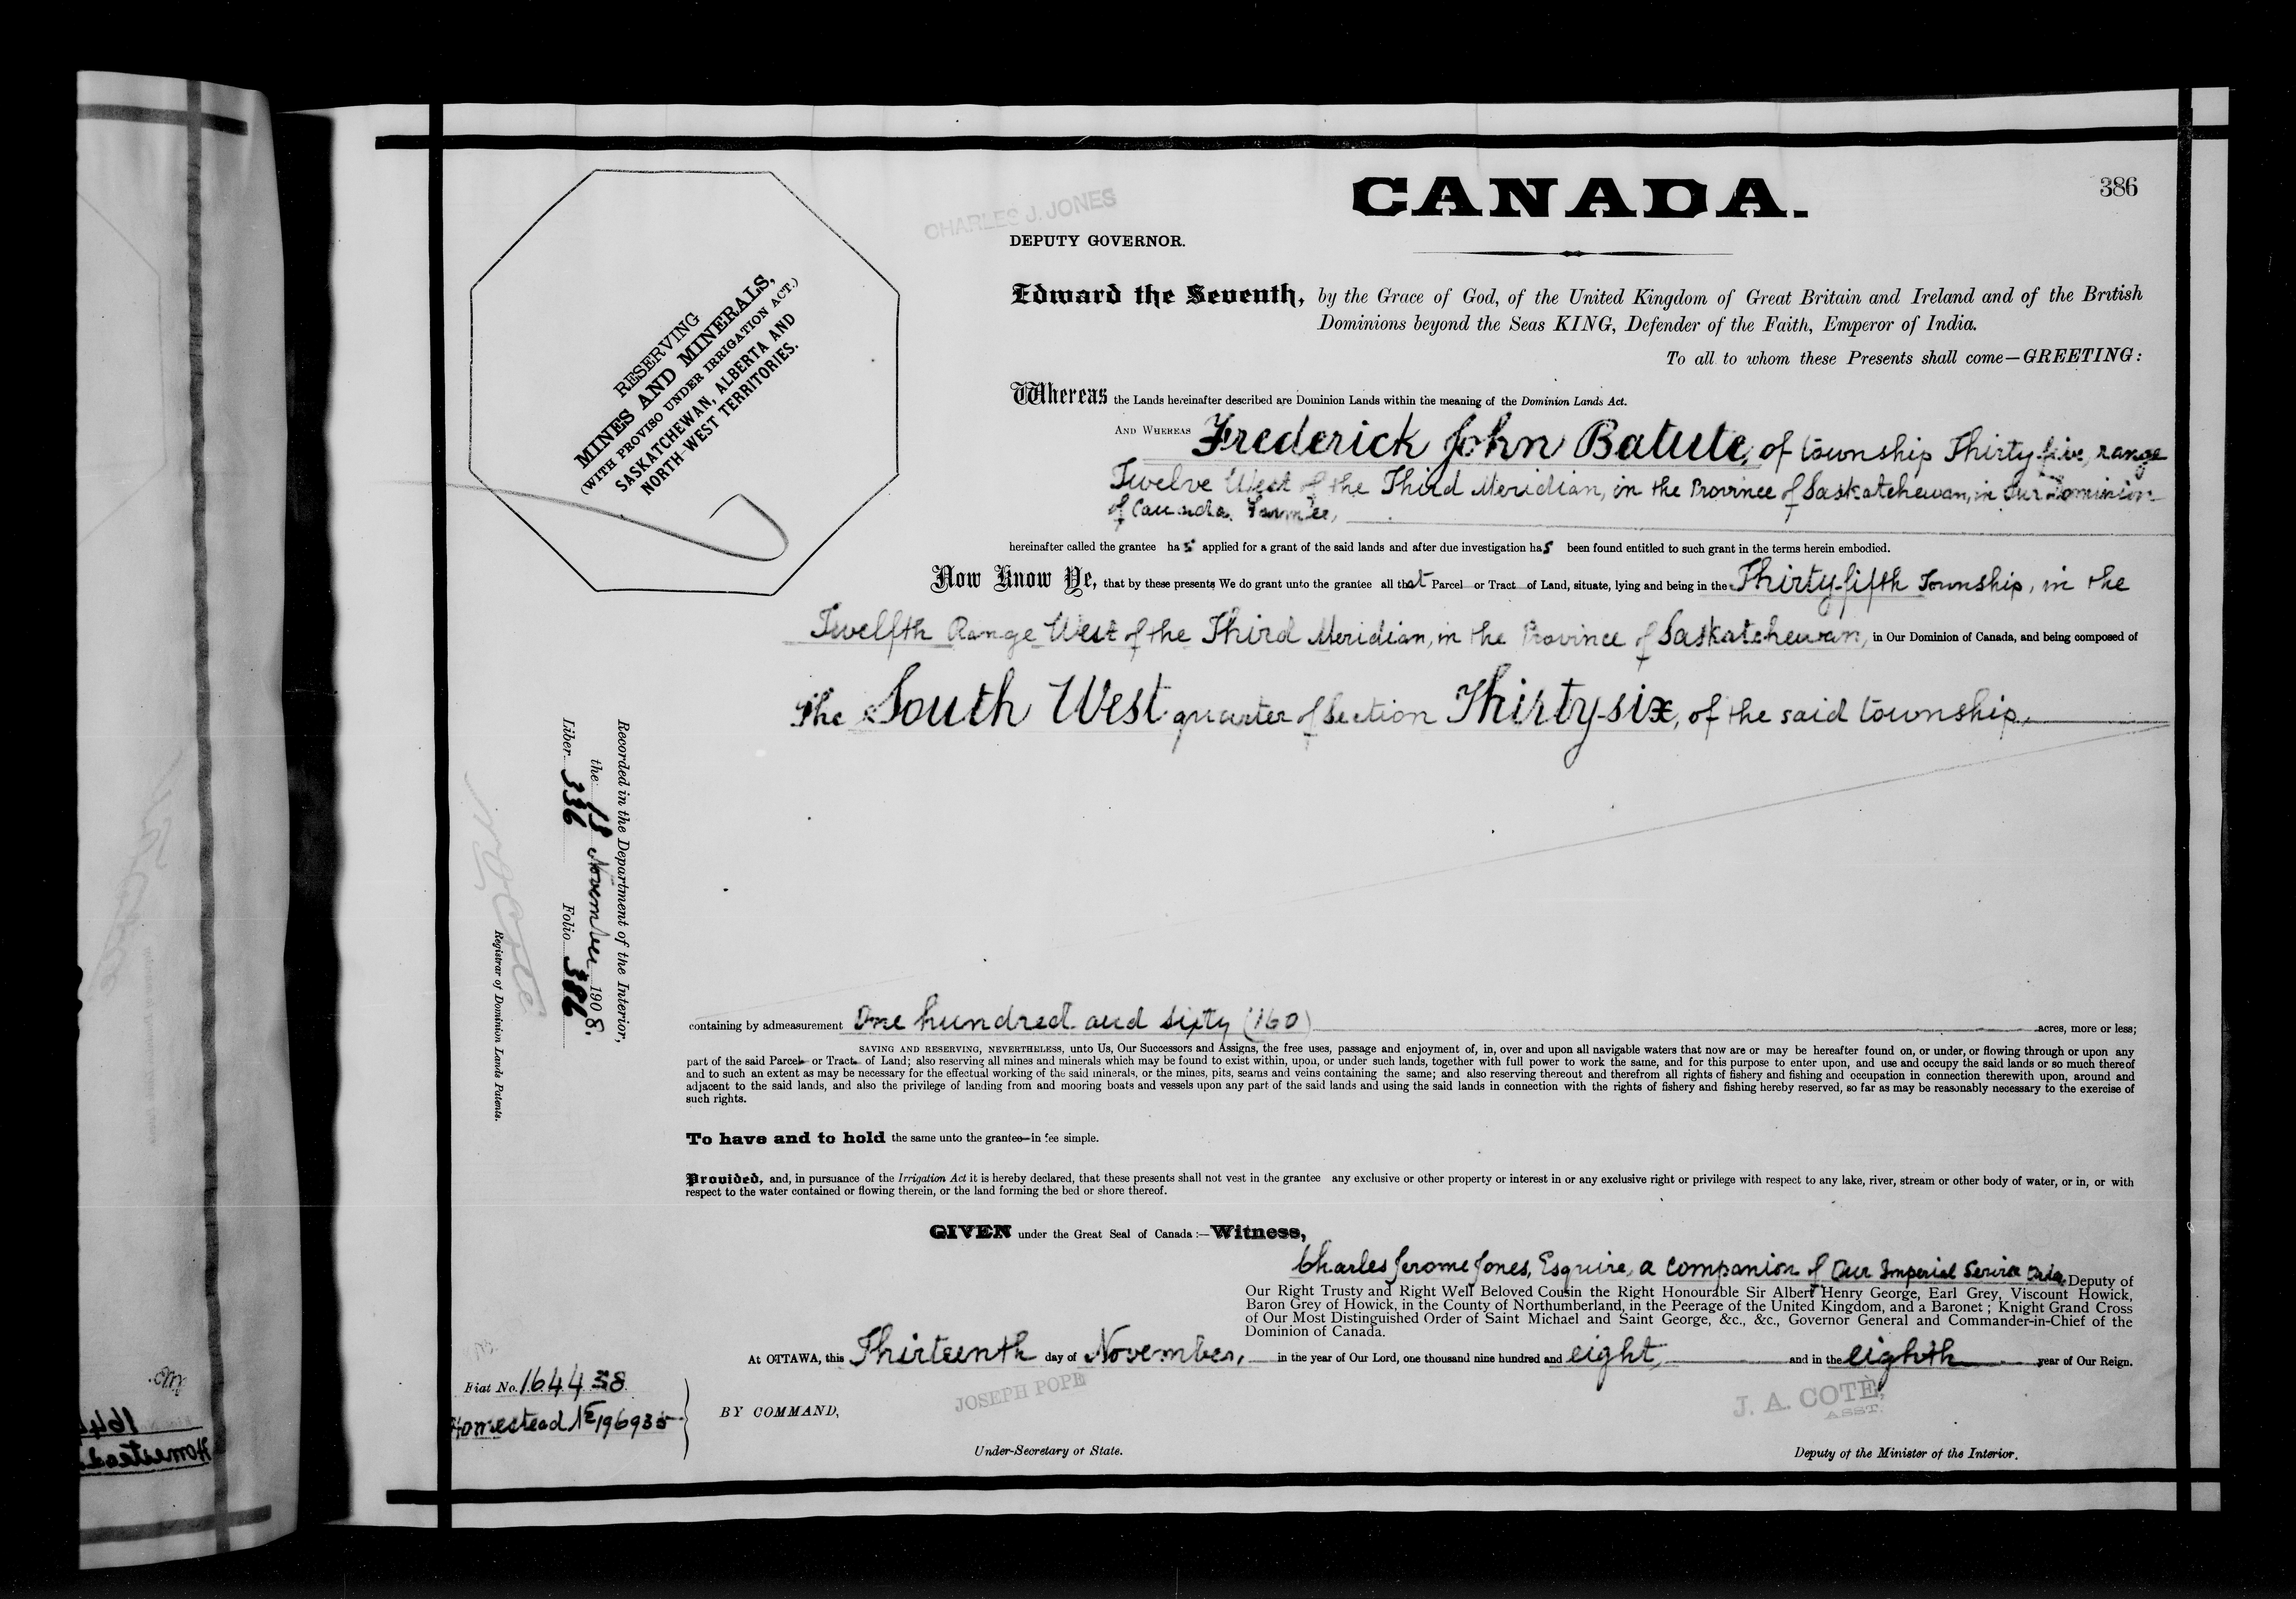 386
CANADA.
CHARLES J. JONES
DEPUTY GOVERNOR.
RESERVING
MINES AND MINERALS,
(WITH PROVISO UNDER IRRIGATION ACT.)
SASKATCHEWAN, ALBERTA AND
NORTH-WEST TERRITORIES.
Edward the Seventh, by the Grace of God, of the United Kingdom of Great Britain and Ireland and of the British
Dominions beyond the Seas KING, Defender of the Faith, Emperor of India.
To all to whom these Presents shall come—GREETING:
Whereas the Lands hereinafter described are Dominion Lands within the meaning of the Dominion Lands Act.
AND WHEREAS Frederick John Batute, of township Thirty-five, range
Twelve West of the Third Meridian, in the Province of Saskatchewan, in Our Dominion
of Canada, Farmer,
hereinafter called the grantee has applied for a grant of the said lands and after due investigation has been found entitled to such grant in the terms herein embodied.
Now Know Ye, that by these presents We do grant unto the grantee all that Parcel or Tract of Land, situate, lying and being in the Thirty-fifth Township, in the
Twelfth Range West of the Third Meridian, in the Province of Saskatchewan, in Our Dominion of Canada, and being composed of
The South West quarter of Section Thirty-six, of the said township,
Recorded in the Department of the Interior,
the 18 November 1908.
Liber 336 Folio 386
Registrar of Dominion Lands Patents.
containing by admeasurement One hundred and sixty (160) acres, more or less;
SAVING AND RESERVING, NEVERTHELESS, unto Us, Our Successors and Assigns, the free uses, passage and enjoyment of, in, over and upon all navigable waters that now are or may be hereafter found on, or under, or flowing through or upon any
part of the said Parcel or Tract of Land; also reserving all mines and minerals which may be found to exist within, upon, or under such lands, together with full power to work the same, and for this purpose to enter upon, and use and occupy the said lands or so much thereof
and to such an extent as may be necessary for the effectual working of the said minerals, or the mines, pits, seams and veins containing the same; and also reserving thereout and therefrom all rights of fishery and fishing and occupation in connection therewith upon, around and
adjacent to the said lands, and also the privilege of landing from and mooring boats and vessels upon any part of the said lands and using the said lands in connection with the rights of fishery and fishing hereby reserved, so far as may be reasonably necessary to the exercise of
such rights.
To have and to hold the same unto the grantee in fee simple.
Provided, and, in pursuance of the Irrigation Act it is hereby declared, that these presents shall not vest in the grantee any exclusive or other property or interest in or any exclusive right or privilege with respect to any lake, river, stream or other body of water, or in, or with
respect to the water contained or flowing therein, or the land forming the bed or shore thereof.
GIVEN under the Great Seal of Canada:—Witness,
Charles Jerome Jones, Esquire, a Companion of Our Imperial Service Order, Deputy of
Our Right Trusty and Right Well Beloved Cousin the Right Honourable Sir Albert Henry George, Earl Grey, Viscount Howick,
Baron Grey of Howick, in the County of Northumberland, in the Peerage of the United Kingdom, and a Baronet; Knight Grand Cross
of Our Most Distinguished Order of Saint Michael and Saint George, &c., &c., Governor General and Commander-in-Chief of the
Dominion of Canada.
At OTTAWA, this Thirteenth day of November, in the year of Our Lord, one thousand nine hundred and eight, and in the eighth year of Our Reign.
Fiat No. 164438
Homestead No 196935
BY COMMAND,
JOSEPH POPE
Under-Secretary of State.
J. A. COTÉ,
ASST.
Deputy of the Minister of the Interior.